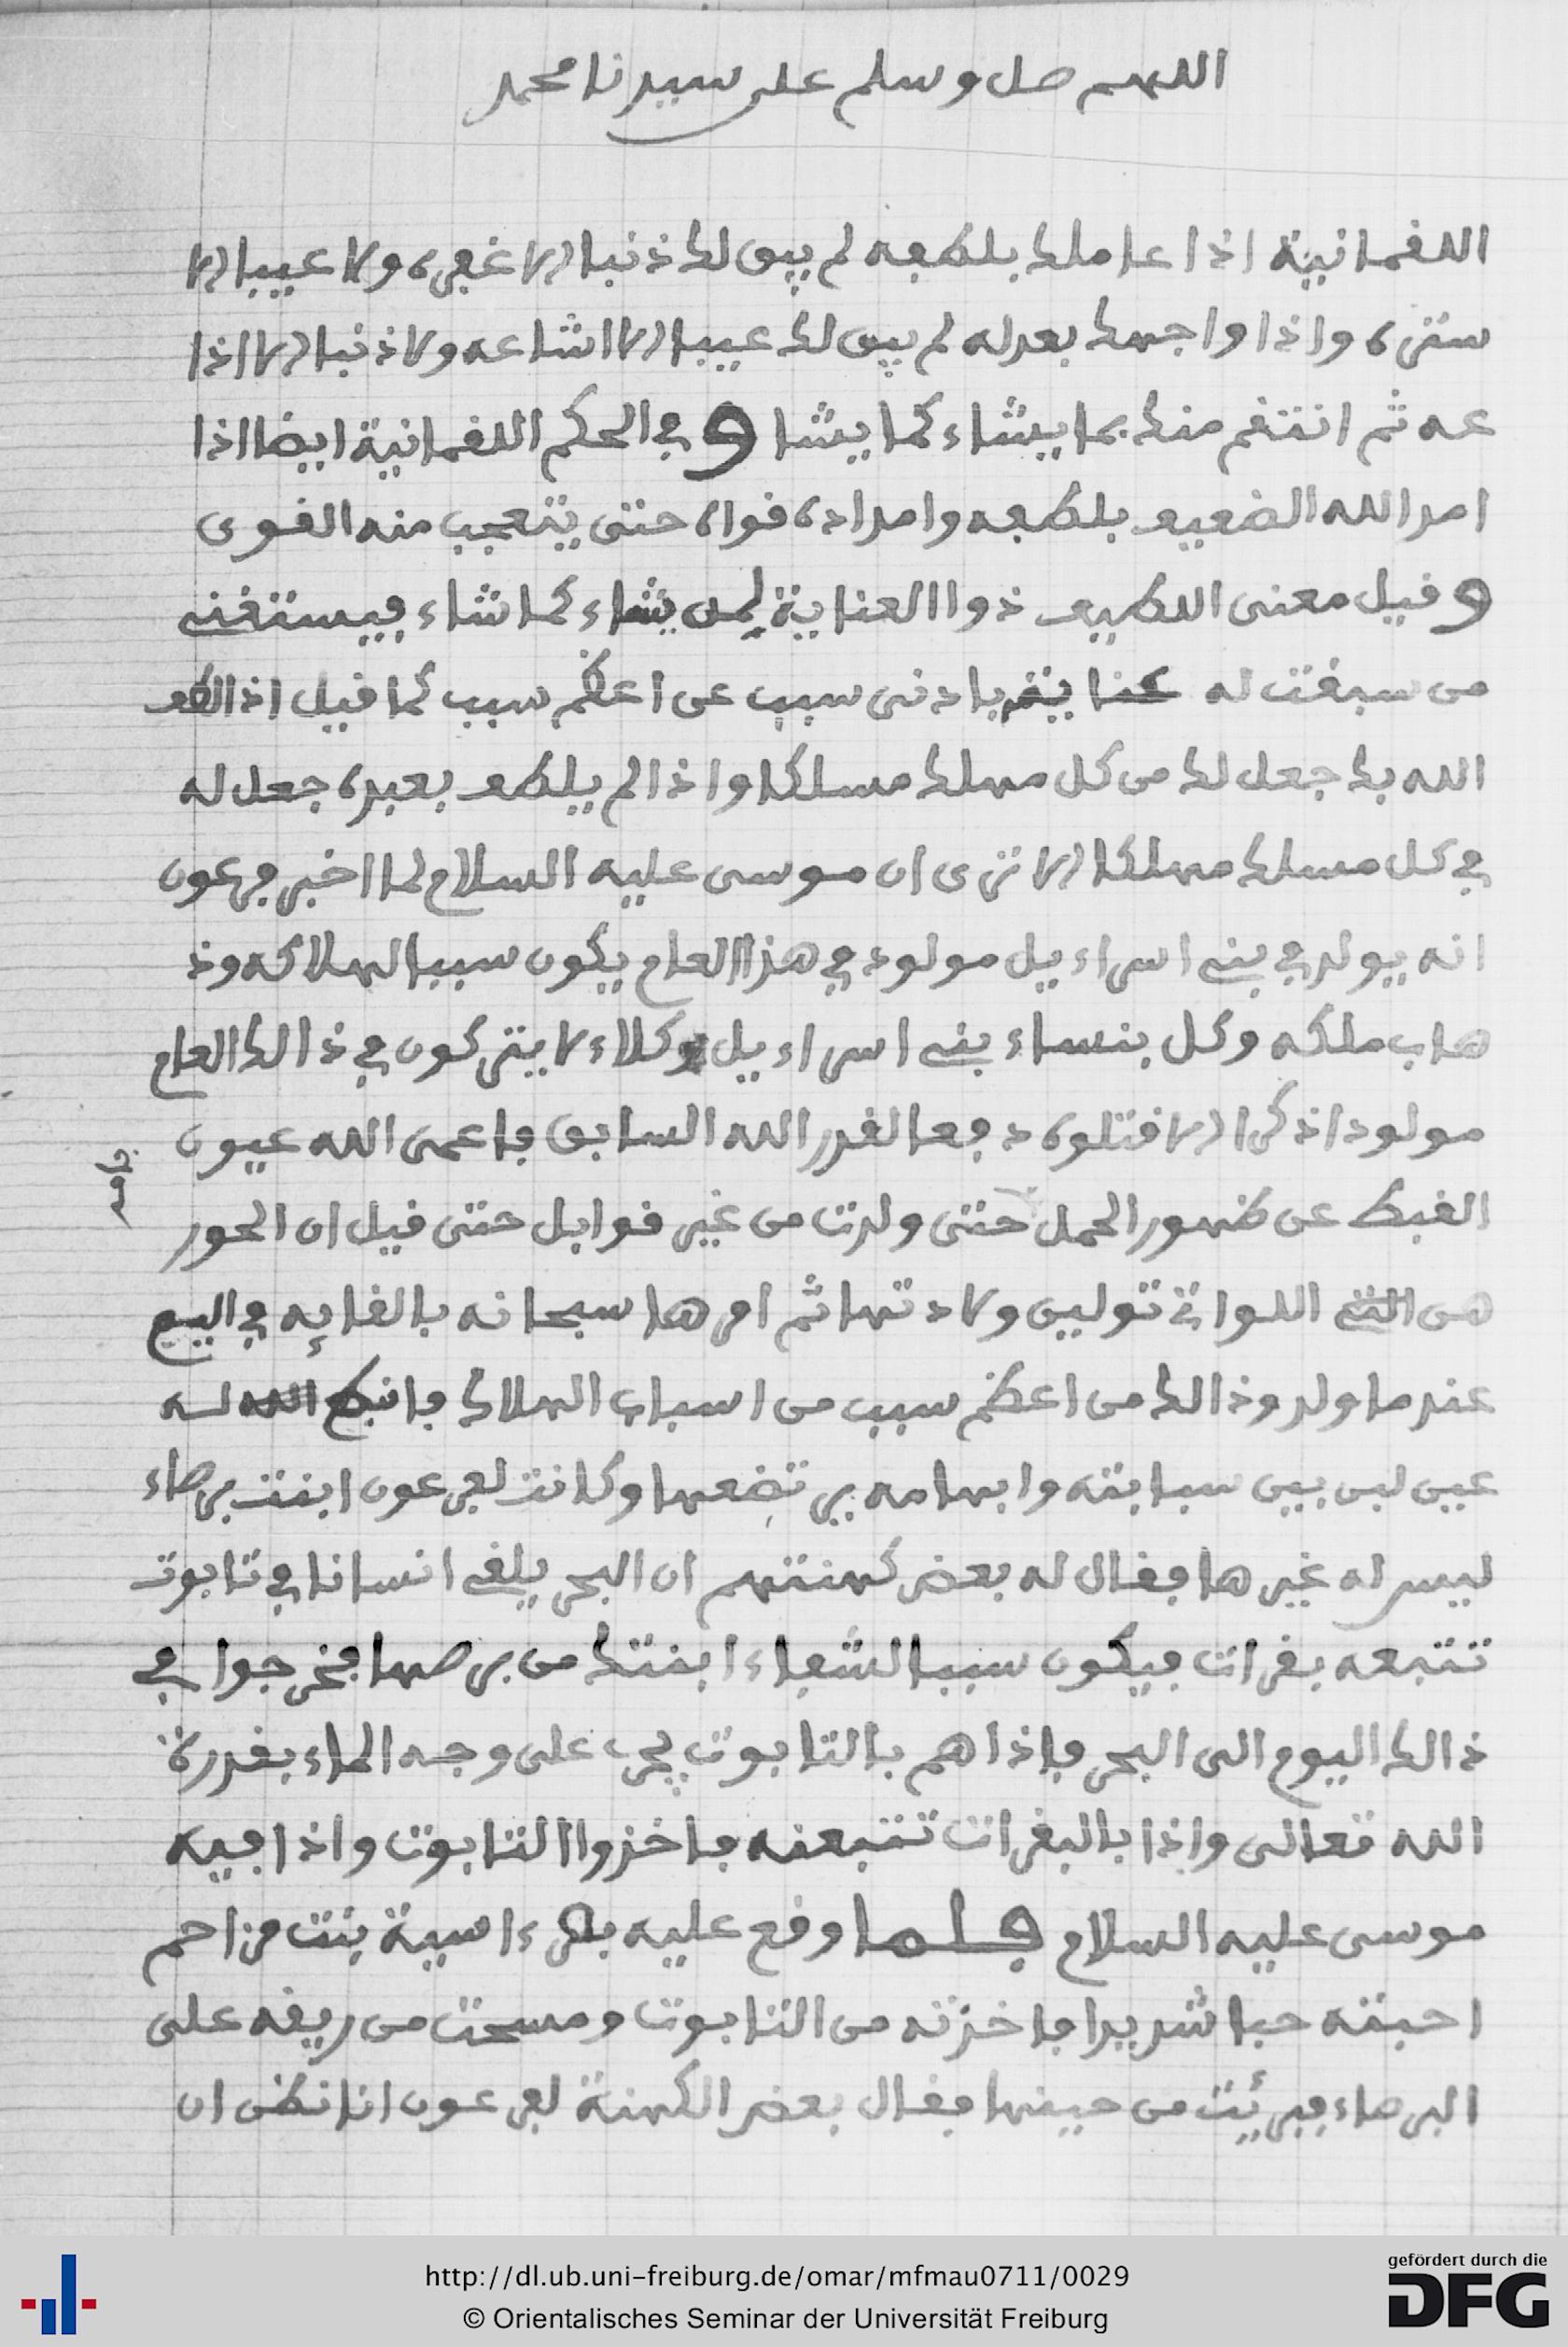 اللهم صل وسلم على سيدنا محمد
اللقمانية اذا عاملك بلطفه لم يبق لك ذنبا الا غفره ولا عيبا الا
ستره واذا واجهك بعدله لم يبق لك عيبا الا اشاعه ولا ذنبا الا اذا
عه ثم انتقم منك بما يشاء كما يشا وفي الحكم اللقمانية ايضا اذا
امد الله الضعيف بلطفه وامداده قواه حتى يتعجب منه القوى
وقيل معنى اللطيف ذوا العناية لمن يشاء كما شاء فيستغنى
من سبقت له عنايته بادنى سبب عن اعظم سبب كما قيل اذا لطف
الله بك جعل لك من كل مهلك مسلكا واذا لم يلطف بعبده جعل له
في كل مسلك مهلكا الا ترى ان موسى عليه السلام لما اخبر فرعون
انه يولد في بنى اسراءيل مولود في هذا العام يكون سببا لهلاكه وذ
هاب ملكه وكل بنساء بنى اسراءيل وكلاء لا يتركون في ذالك العام
مولودا ذكرا الا قتلوه دفعا لقدر الله السابق فاعمى الله عيون
القبط عن ظهور الحمل حتى ولدت من غير قوابل حتى قيل ان الحور
هى اللواتي تولين ولادتها ثم امرها سبحانه بالقايه في اليم
عندما ولد وذالك من اعظم سبب من اسباب الهلاك فانبع الله له
عين لبن بين سبابته وابهامه يرتضعها وكانت لفرعون ابنت برصاء
ليس له غيرها فقال له بعض كهنتهم ان البحر يلقى انسانا في تابوت
تتبعه بقرات فيكون سببا لشفاء ابنتك من برصها فخرجوا في
ذالك اليوم الى البحر فاذاهم بالتابوت يجرى على وجه الماء بقدرة
الله تعالى واذا بالبقرات تتبعنه فاخذوا التابوت واذا فيه
موسى عليه السلام فلما وقع عليه بصر ءاسية بنت مزاحم
احبته حبا شديدا فاخذته من التابوت ومسحت من ريقه على
البرصاء فبرئت من حينها فقال بعض الكهنة لفرعون انا نظن ان
http://dl.ub.uni-freiburg.de/omar/mfmau0711/0029
© Orientalisches Seminar der Universität Freiburg
gefördert durch die
DFG